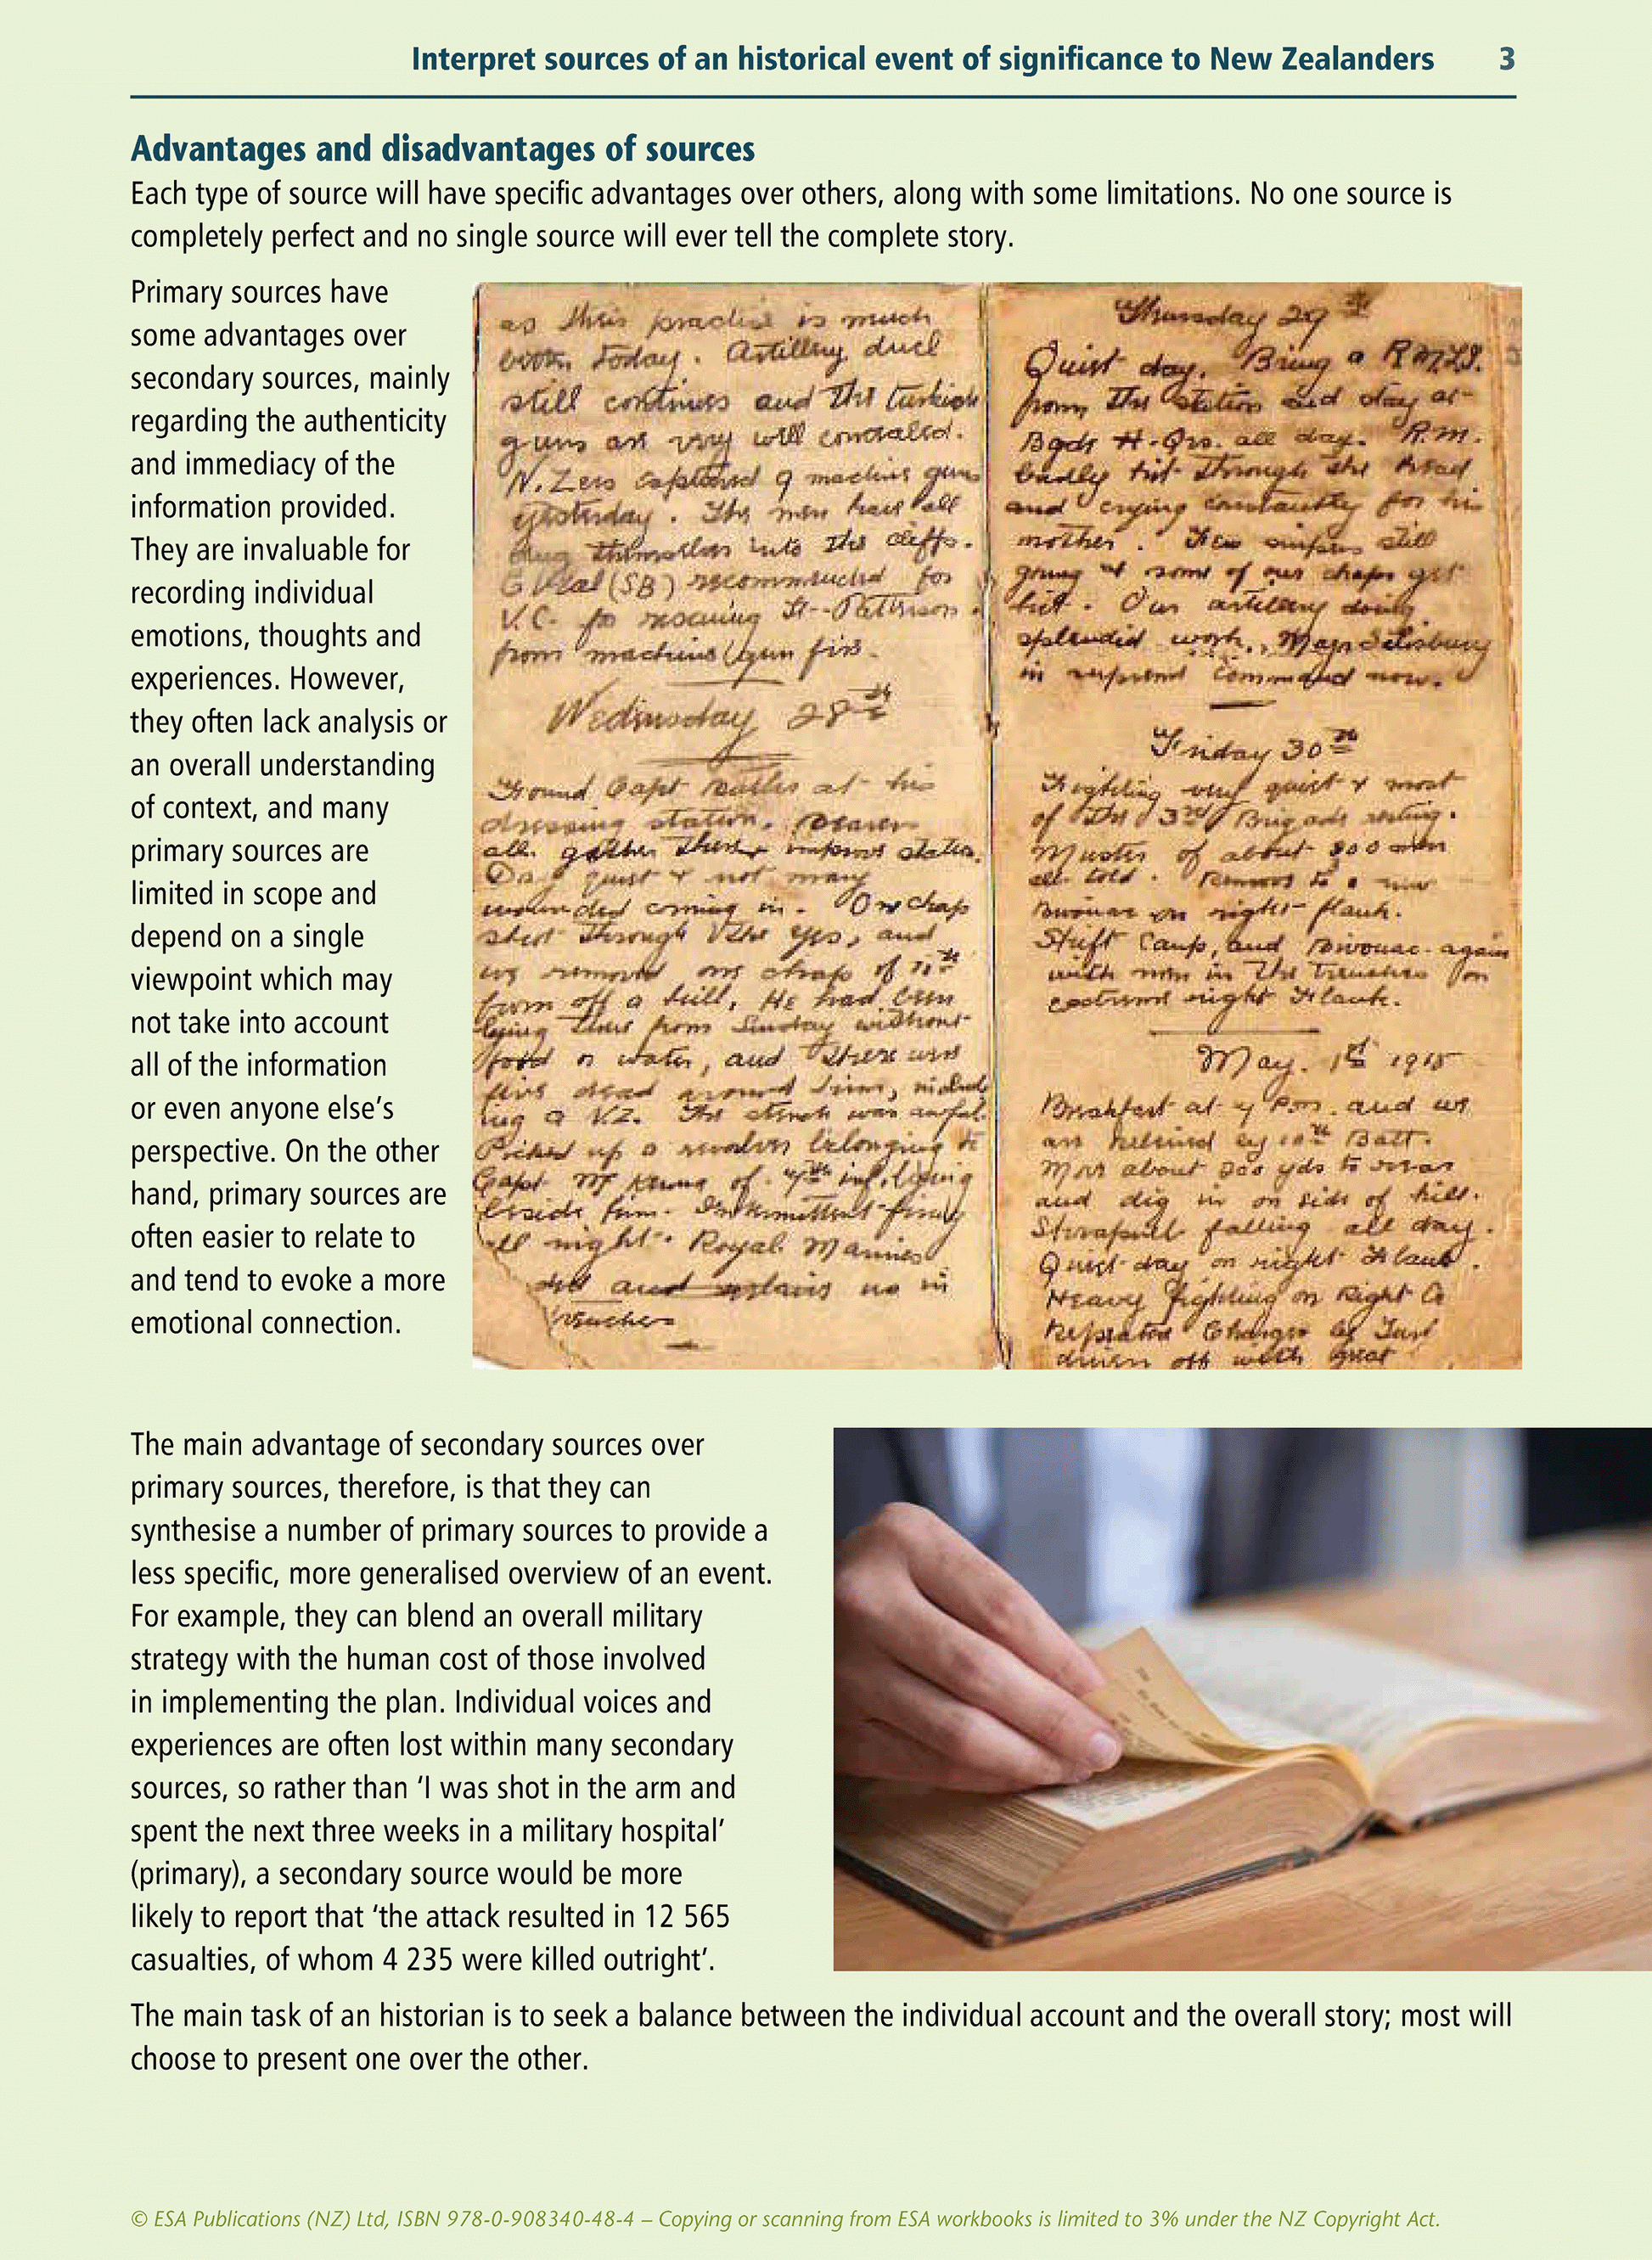 Interpret sources of an historical event of significance to New Zealanders 3
Advantages and disadvantages of sources
Each type of source will have specific advantages over others, along with some limitations. No one source is
completely perfect and no single source will ever tell the complete story.
Primary sources have
some advantages over
secondary sources, mainly
regarding the authenticity
and immediacy of the
information provided.
They are invaluable for
recording individual
emotions, thoughts and
experiences. However,
they often lack analysis or
an overall understanding
of context, and many
primary sources are
limited in scope and
depend on a single
viewpoint which may
not take into account
all of the information
or even anyone else’s
perspective. On the other
hand, primary sources are
often easier to relate to
and tend to evoke a more
emotional connection.
as their practise is much
today. Artillery duel
still continues and the Turkish
guns are very well concealed.
N. Zers captured 9 machine guns
yesterday. The men have all
dug themselves into the cliffs.
(SB) recommended for
V.C. for rescuing Lt. Patterson
from machine gun fire.
Wednesday 28th
Found Capt at his
dressing station. Bearers
all gather there & improve station.
Day quiet & not many
wounded coming in. One chap
shot through the eyes, and
we removed one chap of 11th
from off a hill. He had been
lying there from Sunday without
food or water, and there were
five dead around him, includ
ing a N.Z. The stench was awful.
Picked up a revolver belonging to
Capt of inf. lying
beside him. Intermittent firing
all night. Royal Marines
and no in
trenches
Thursday 29th
Quiet day. Bring a R.M.L.I.
from the station and stay at
Bgde H-Qrs. all day. R.M.
badly hit through the head
and crying constantly for his
mother. Few snipers still
going & some of our chaps get
hit. Our artillery doing
splendid work. Major Salisbury
in supreme command now.
Friday 30th
Fighting very quiet & most
of the 3rd Brigade resting.
Muster of about 800 men
all told. Remove to a new
Bivouac on right flank.
Shift Camp, and Bivouac again
with men in the trenches on
extreme right Flank.
May. 1st 1915
Breakfast at 4 P.m. and we
are relieved by 10th Batt.
Move about 200 yds to rear
and dig in on side of hill.
Shrapnell falling all day.
Quiet day on right Flank.
Heavy fighting on Right Co
Repeated Charges by Turk
driven off with great
The main advantage of secondary sources over
primary sources, therefore, is that they can
synthesise a number of primary sources to provide a
less specific, more generalised overview of an event.
For example, they can blend an overall military
strategy with the human cost of those involved
in implementing the plan. Individual voices and
experiences are often lost within many secondary
sources, so rather than ‘I was shot in the arm and
spent the next three weeks in a military hospital’
(primary), a secondary source would be more
likely to report that ‘the attack resulted in 12 565
casualties, of whom 4 235 were killed outright’.
The main task of an historian is to seek a balance between the individual account and the overall story; most will
choose to present one over the other.
© ESA Publications (NZ) Ltd, ISBN 978-0-908340-48-4 – Copying or scanning from ESA workbooks is limited to 3% under the NZ Copyright Act.